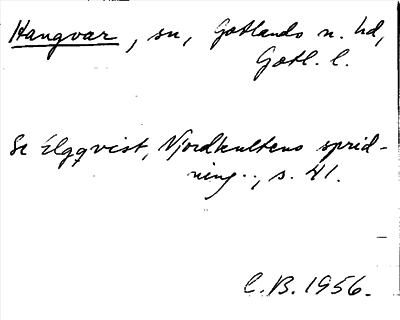 Hangvar, sn, Gotlands n. hd,
Gotl. l.
Se Elgqvist, Njordkultens sprid-
ning.., s. 41.
C.B. 1956.